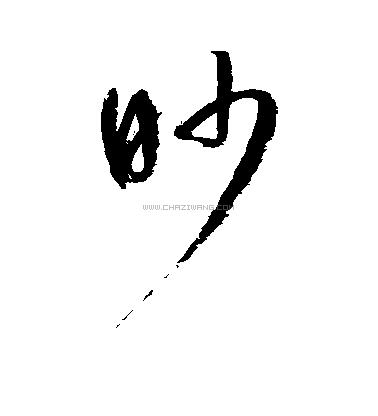 眇
WWW.CHAZIWANG.COM